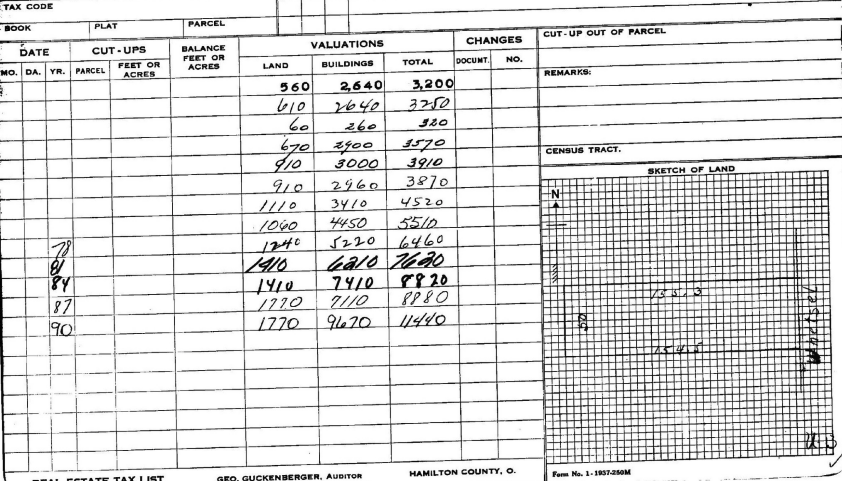 TAX CODE
BOOK PLAT PARCEL
DATE CUT-UPS BALANCE FEET OR ACRES VALUATIONS CHANGES
MO. DA. YR. PARCEL FEET OR ACRES LAND BUILDINGS TOTAL DOCUMT. NO.
560 2,640 3,200
610 2640 3250
60 260 320
670 2900 3570
910 3000 3910
910 2960 3870
1110 3410 4520
1060 4450 5510
78 1240 5220 6460
81 1410 6210 7620
84 1410 7410 8820
87 1770 7110 8880
90 1770 9670 11440
REAL ESTATE TAX LIST GEO. GUCKENBERGER, AUDITOR HAMILTON COUNTY, O.
CUT-UP OUT OF PARCEL
REMARKS:
CENSUS TRACT.
SKETCH OF LAND
N
155.3
50
154.5
Whetsel
Form No. 1-1937-250M